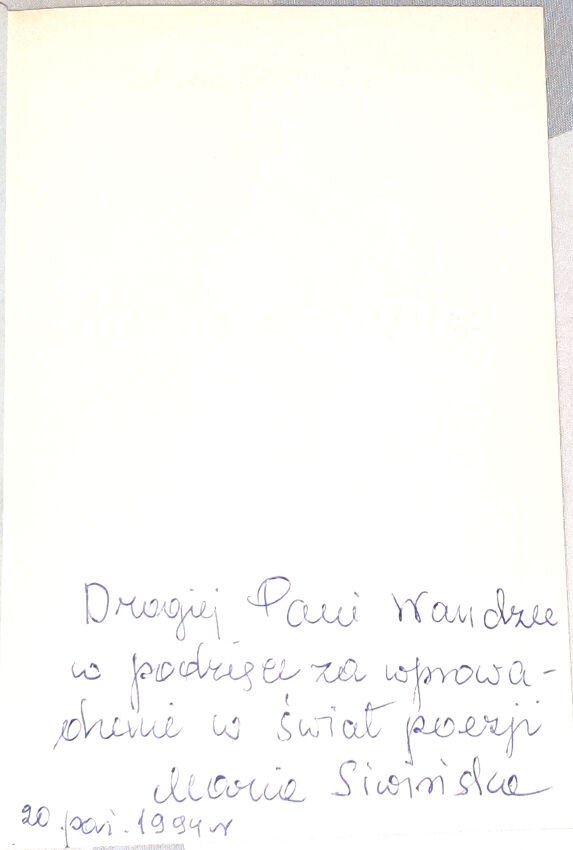 Drogiej Pani Wandzie
w podzięce za wprowa-
dzenie w świat poezji
Maria Siwińska
20.paź.1994r